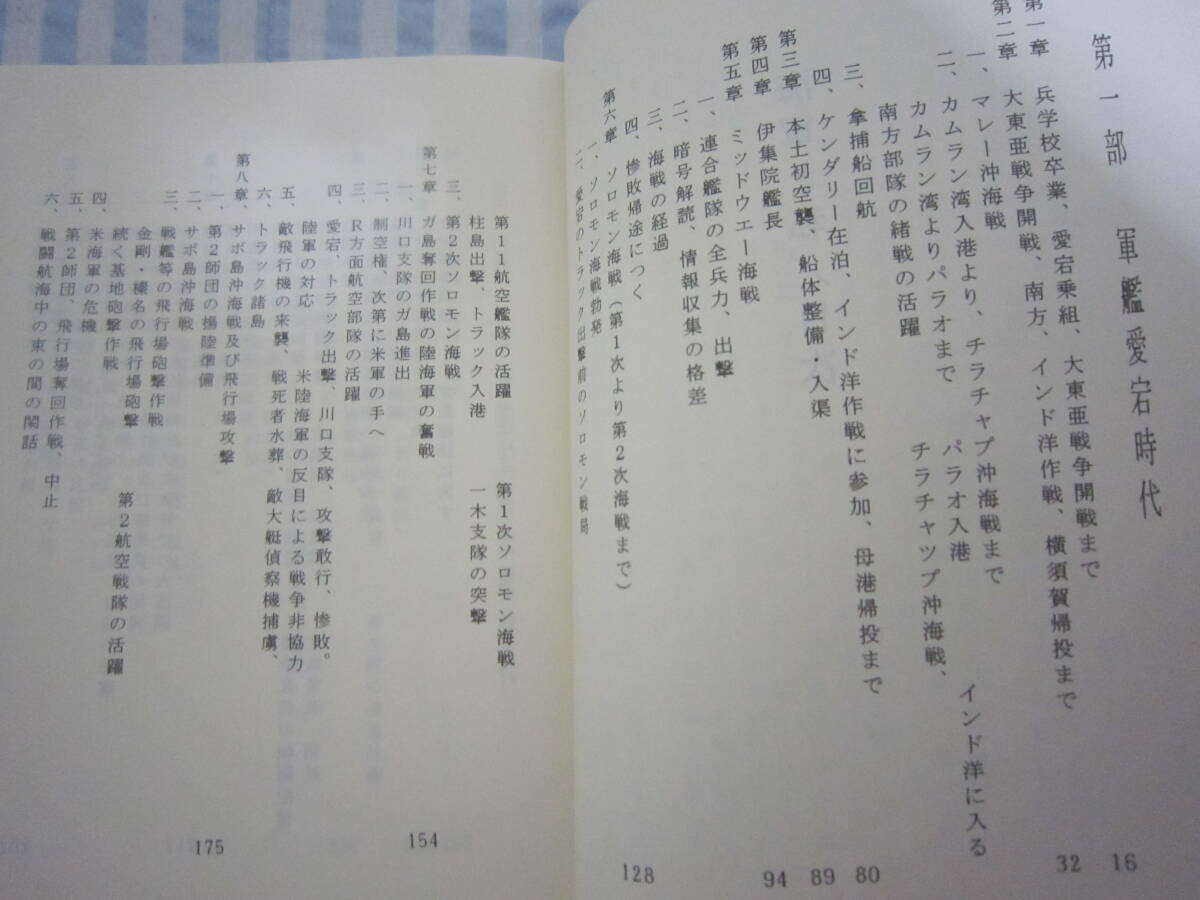 第一部　軍艦愛宕時代
第一章　兵学校卒業、愛宕乗組、大東亜戦争開戦まで　16
第二章　大東亜戦争開戦、南方、インド洋作戦、横須賀帰投まで　32
一、マレー沖海戦
二、カムラン湾入港より、チラチャプ沖海戦まで
カムラン湾よりパラオまで　パラオ入港　インド洋に入る
南方部隊の緒戦の活躍　チラチャップ沖海戦、
三、拿捕船回航
四、ケンダリー在泊、インド洋作戦に参加、母港帰投まで
第三章　本土初空襲、船体整備・入渠　80
第四章　伊集院艦長　89
第五章　ミッドウエー海戦　94
一、連合艦隊の全兵力、出撃
二、暗号解読、情報収集の格差
三、海戦の経過
四、惨敗帰途につく
第六章　ソロモン海戦（第１次より第２次海戦まで）　128
一、ソロモン海戦勃発
二、愛宕のトラック出撃前のソロモン戦局
第１１航空艦隊の活躍　第１次ソロモン海戦
柱島出撃、トラック入港　一木支隊の突撃
三、第２次ソロモン海戦
第七章　ガ島奪回作戦の陸海軍の奮戦　154
一、川口支隊のガ島進出
二、制空権、次第に米軍の手へ
三、Ｒ方面航空部隊の活躍
四、愛宕、トラック出撃、川口支隊、攻撃敢行、惨敗。
陸軍の対応　米陸海軍の反目による戦争非協力
五、敵飛行機の来襲、戦死者水葬、敵大艇偵察機捕虜、
六、トラック諸島
第八章、サボ島沖海戦及び飛行場攻撃　175
一、第２師団の揚陸準備
二、サボ島沖海戦
三、戦艦等の飛行場砲撃作戦
金剛・榛名の飛行場砲撃
続く基地砲撃作戦　第２航空戦隊の活躍
四、米海軍の危機
五、第２師団、飛行場奪回作戦、中止
六、戦闘航海中の束の間の閑話